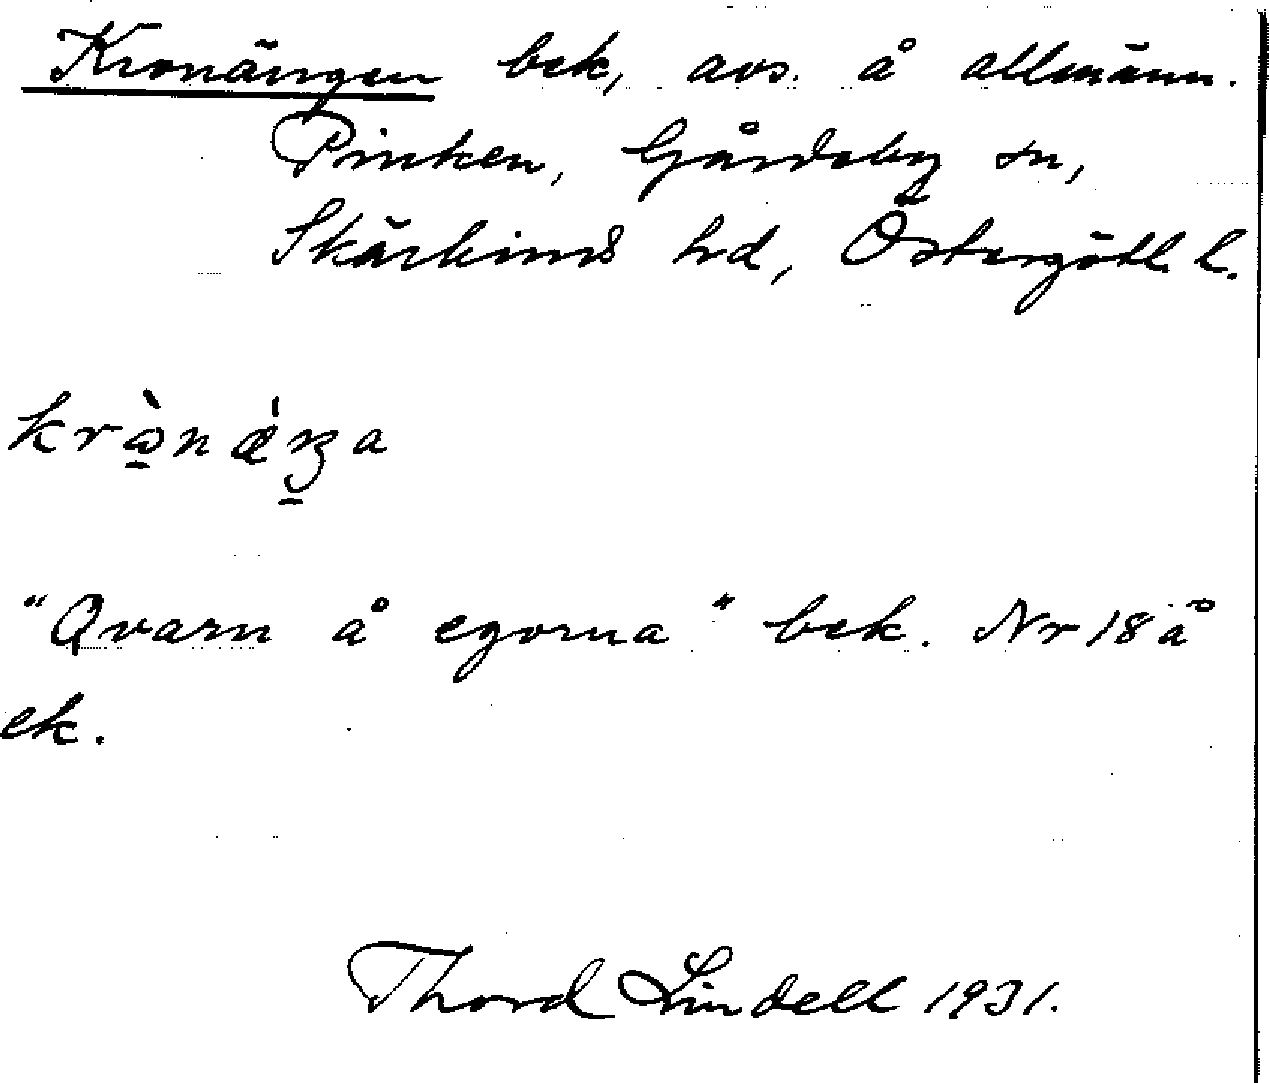 Kronängen bek, avs. å allmänn.
Pinken, Gårdeby sn,
Skärkinds hd, Östergötl. l.
krònǽŋa
"Qvarn å egorna" bek. Nr 18 å
ek.
Thord Lindell 1931.